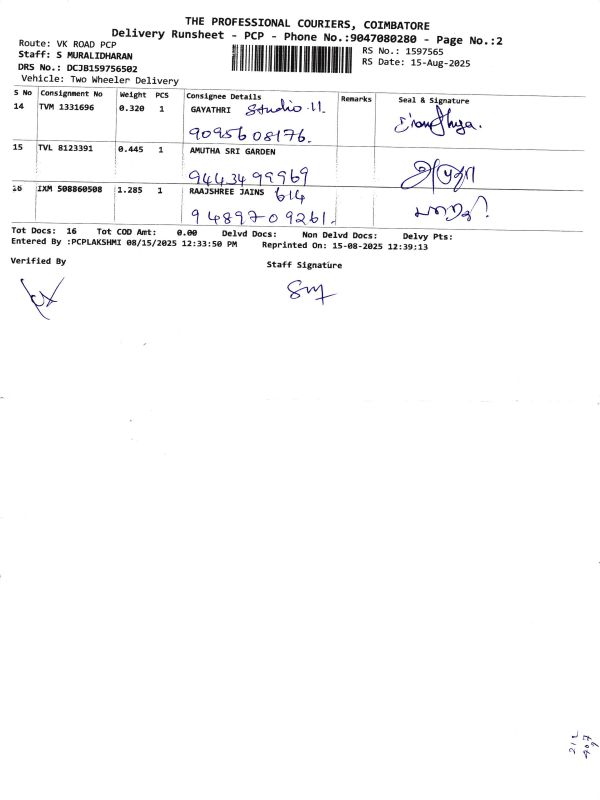 THE PROFESSIONAL COURIERS, COIMBATORE
Delivery Runsheet - PCP - Phone No.:9047080280 - Page No.:2
Route: VK ROAD PCP
RS No.: 1597565
Staff: S MURALIDHARAN
RS Date: 15-Aug-2025
DRS No.: DCJB159756502
Vehicle: Two Wheeler Delivery
S No Consignment No Weight PCS Consignee Details Remarks Seal & Signature
14 TVM 1331696 0.320 1 GAYATHRI Studio 11
9095608176.
15 TVL 8123391 0.445 1 AMUTHA SRI GARDEN
9443499969
16 IXM 508860508 1.285 1 RAAJSHREE JAINS 614
9489709261.
Tot Docs: 16 Tot COD Amt: 0.00 Delvd Docs: Non Delvd Docs: Delvy Pts:
Entered By :PCPLAKSHMI 08/15/2025 12:33:50 PM Reprinted On: 15-08-2025 12:39:13
Verified By
Staff Signature
212